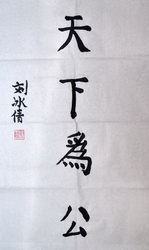 天下為公
刘冰倩